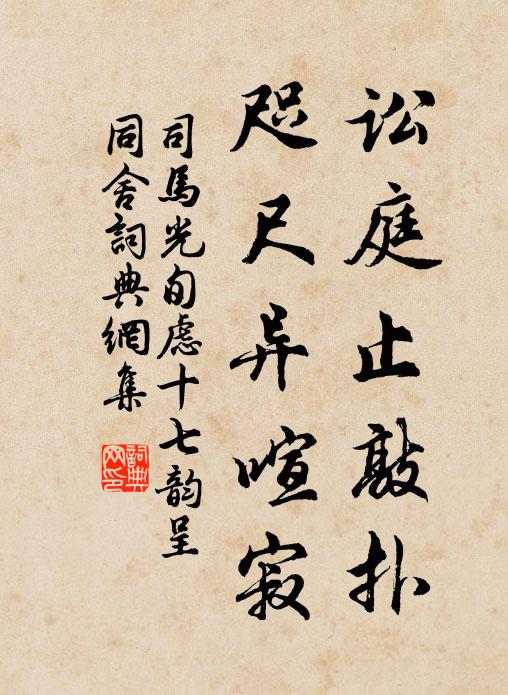 讼庭止敲扑
咫尺异喧寂
司馬光旬慮十七韵呈
同舍詞典網集
詞典网印